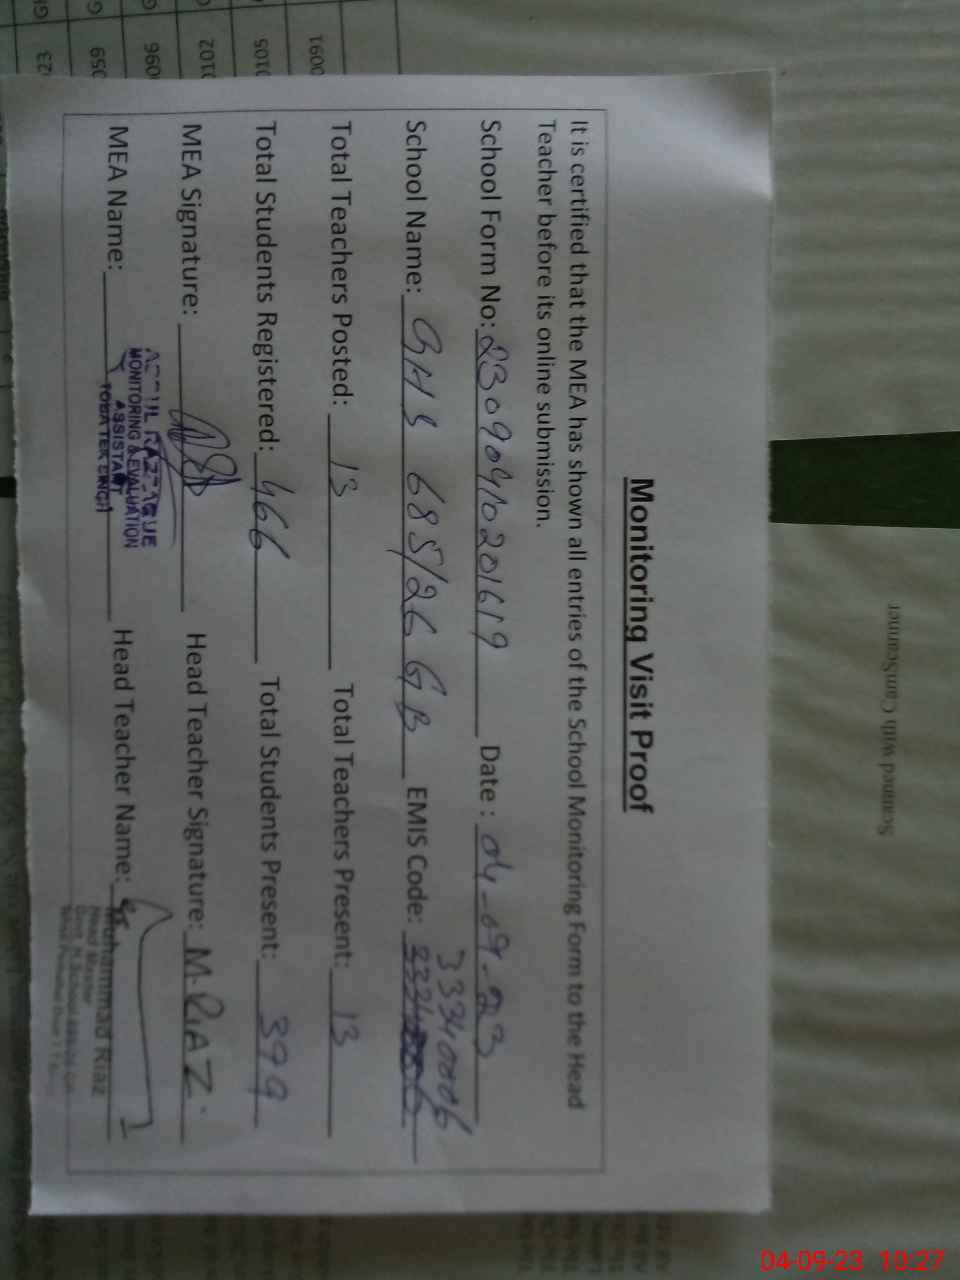 Monitoring Visit Proof
It is certified that the MEA has shown all entries of the School Monitoring Form to the Head
Teacher before its online submission.
School Form No: 2309040201619 Date : 04-09-23
33340006
School Name: GHS 685/26 GB EMIS Code:
Total Teachers Posted: 13 Total Teachers Present: 13
Total Students Registered: 466 Total Students Present: 399
MEA Signature: Head Teacher Signature: M.RiAZ.
MEA Name: Head Teacher Name:
RAZZAQUE
MONITORING & EVALUATION
ASSISTANT
TOBA TEK SINGH
Muhammad Riaz
Head Master
Scanned with CamScanner
04-09-23 10:27